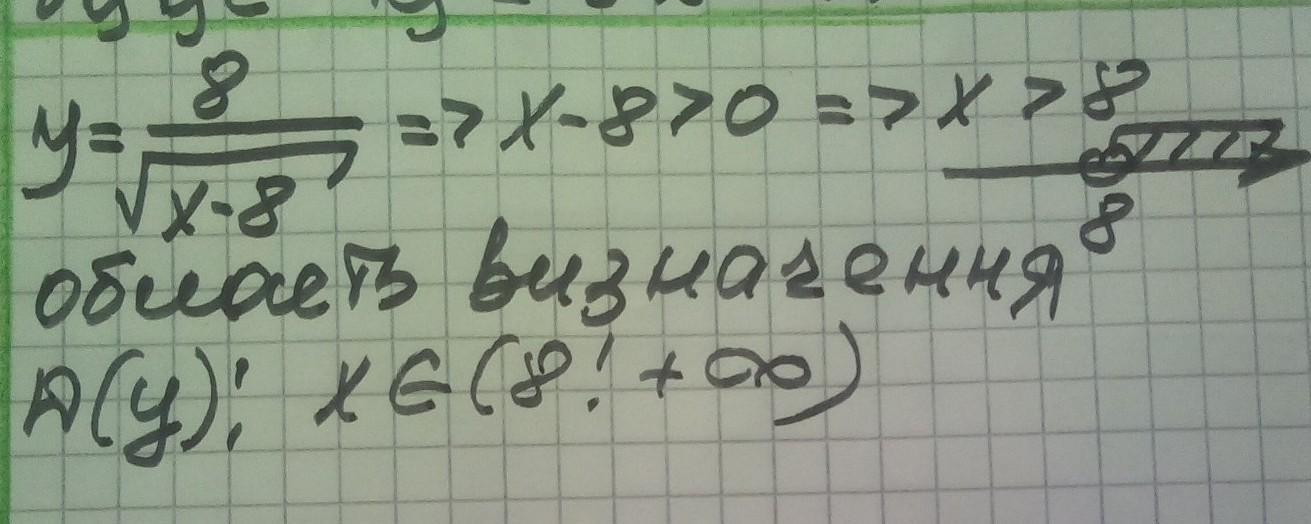 y = 8/√(x-8) => x-8>0 => x > 8
8
область визначення
D(y): x∈(8; +∞)